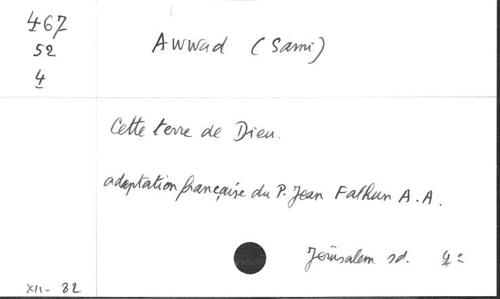 467
52
4
Awwad (Sami)
Cette terre de Dieu.
adaptation française du P. Jean Falhun A.A.
Jérusalem sd. 4º
XII - 82